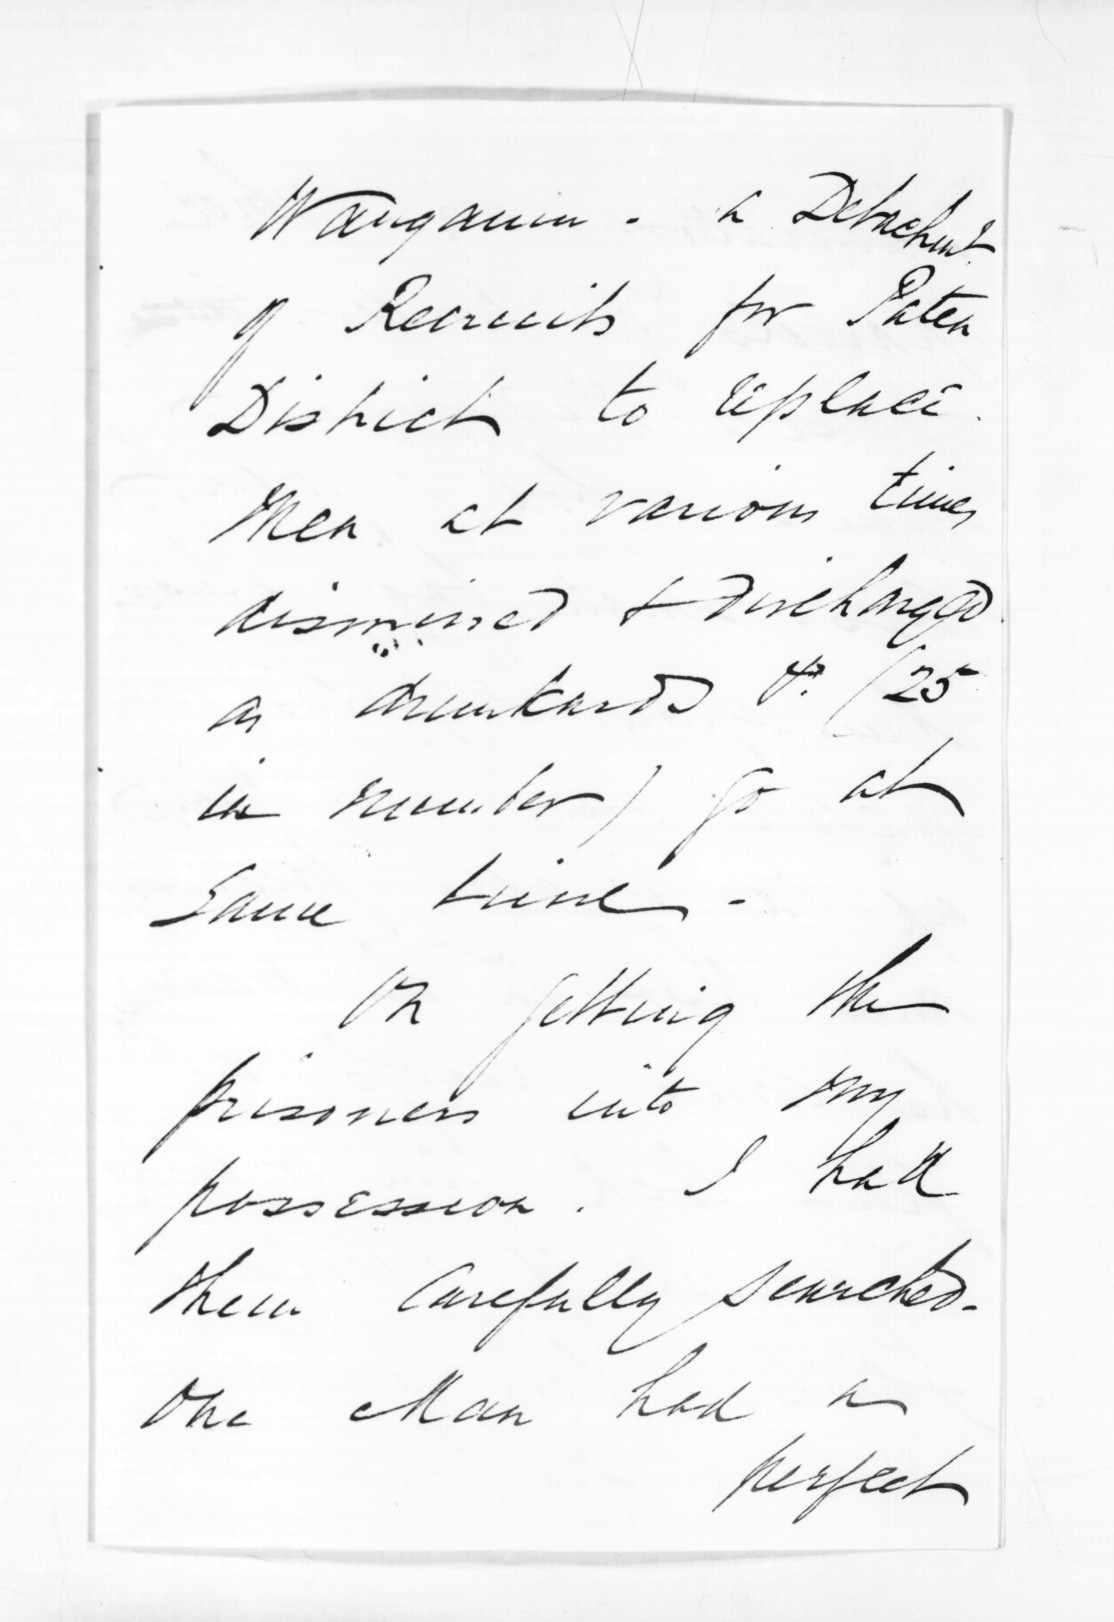 Wanganui - a Detachmt.
of Recruits for Patea
District to replace
Men at various times
dismissed & discharged
as drunkards &. (25
in number) go at
same time -
On getting the
prisoners into my
possession. I had
them carefully searched -
One Man had a
perfect